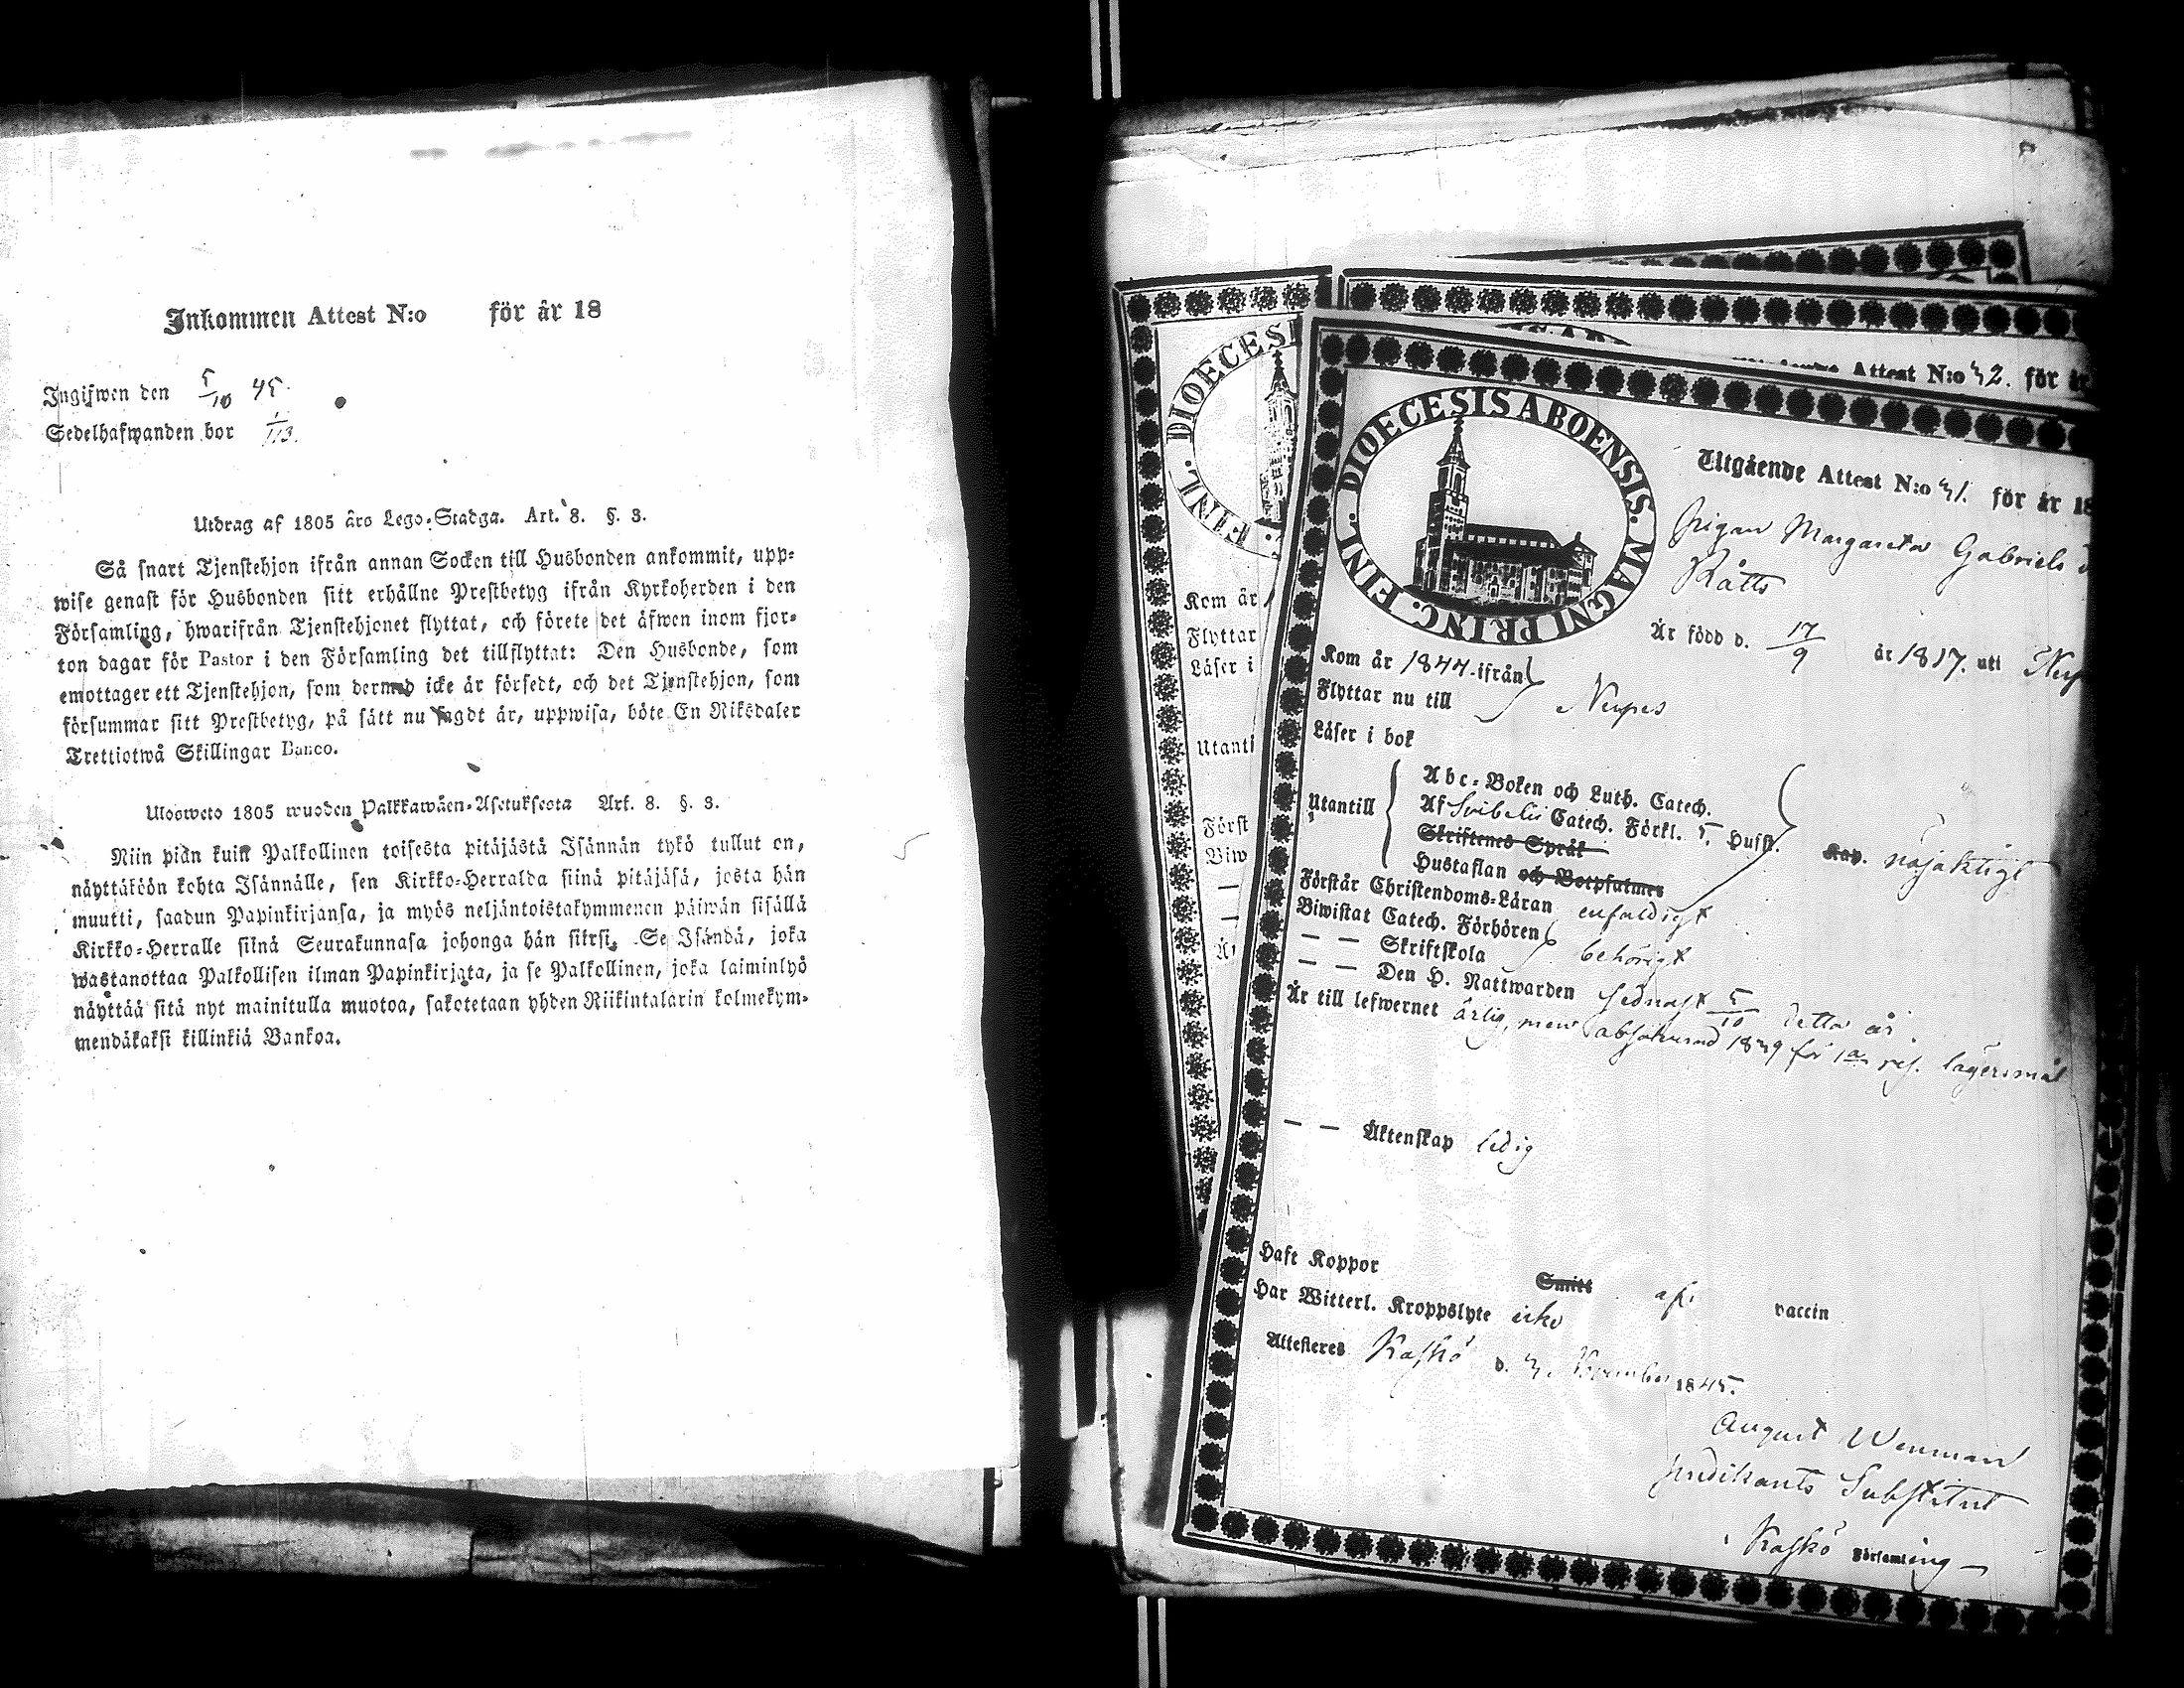 Inkommen Attest N:o för år 18
Ingifwen den 5/10 45.
Sedelhafwanden bor 1/113.
Utdrag af 1805 års Lego-Stadga. Art. 8. §. 3.
Så snart Tjenstehjon ifrån annan Socken till Husbonden ankommit, upp-
wise genast för Husbonden sitt erhållne Prestbetyg ifrån Kyrkoherden i den
Församling, hwarifrån Tjenstehjonet flyttat, och förete det äfwen inom fjor-
ton dagar för Pastor i den Församling det tillflyttat: Den Husbonde, som
emottager ett Tjenstehjon, som dermed icke är försedt, och det Tjenstehjon, som
försummar sitt Prestbetyg, på sätt nu sagdt är, uppwisa, böte En Riksdaler
Trettiotwå Skillingar Banco.
Ulosweto 1805 wuoden Palkkawäen-Asetuksesta Art. 8. §. 3.
Niin pian kuin Palkollinen toisesta pitäjästä Isännän tykö tullut on,
näyttäköön kohta Isännälle, sen Kirkko-Herralda siinä pitäjäsä, josta hän
muutti, saadun Papinkirjansa, ja myös neljäntoistakymmenen päiwän sisällä
Kirkko-Herralle siinä Seurakunnasa johonga hän siirsi. Se Isändä, joka
wastanottaa Palkollisen ilman Papinkirjata, ja se Palkollinen, joka laiminlyö
näyttää sitä nyt mainitulla muotoa, sakotetaan yhden Riikintalarin kolmekym-
mendäkaksi killinkiä Bankoa.
DIOECESI
FINL.
Kom år
Flyttar
Läser i
Utanti
Först
Biw
Attest N:o 32. för år
DIOECESIS ABOENSIS. MAGNI PRINC. FINL.
Utgående Attest N:o 31. för år 18
Pigan Margareta Gabriels
Rätts
Är född d. 17/9 år 1817. uti
Kom år 1844 ifrån
Flyttar nu till Nerpes
Läser i bok
Utantill
Abc-Boken och Luth. Catech.
Af Svibelii Catech. Förkl. 5, Hufst.
Skriftenes Språk
Hustaflan och Botpsalmes
Kap. nöjaktigt
Förstår Christendoms-Läran enfaldigt
Biwistat Catech. Förhören
— — Skriftskola behörigt
— — Den H. Nattwarden sednast 5/10 detta år
Är till lefwernet ärlig, men absolverad 1839 för 1a resl. lägersmål
— — Äktenskap ledig
Haft Koppor Smitt af vaccin
Har Witterl. Kroppslyte icke
Attesteras Kaskö d. 3 November 1845.
August Wenman
predikants Substitut
i Kaskö Församling